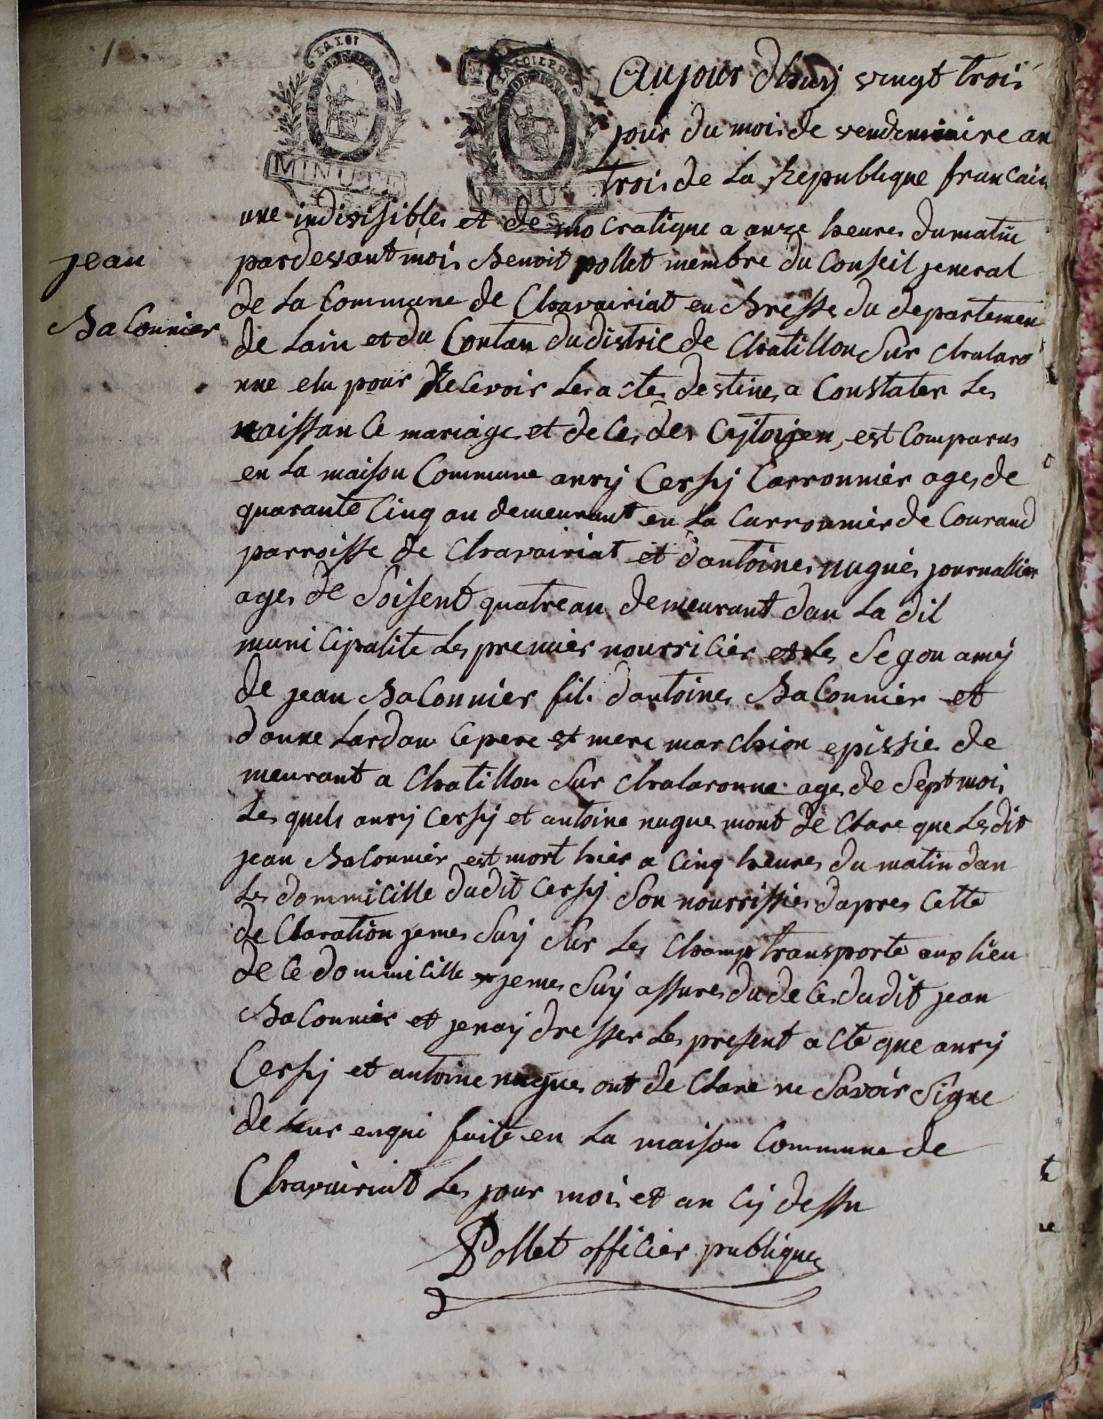 Aujour dhuy vingt trois
jour du mois de vendemiaire an
trois de La Republique francaise
une indivisibles et de mo cratique a onze heures du matin
MINUTE
MINUT
jean
Baconnier
par devant moi Benoit pollet membre du Conseil jeneral
de La Commune de Chavairiat en Bresse du departemen
de Lain et du Contan du distric de Chatillon Sur chalaro
nne elu pour Recevoir Les actes destines a Constater Les
naissance mariages et de Ces des Cytoyen, est Comparus
en La maison Commune anry Cersy Carronnier ages de
quarante Cinq an demeurant en La Carronnier de Courand
parroisse de Chavairiat et dantoines nugues journallier
ages de Soisent quatre an demeurant dan La dit
municipalite Les premier nourricier et Les Segon amy
de jean Baconnier fils dantoines Baconnier et
danne Lardan Cepere et mere marchion epissies de
meurant a Chatillon Sur chalaronne ages de Sept moi
Les quels anry Cersy et antoine nugues mont de Clare que Les dit
jean Baconnier est mort hier a Cinq heures du matin dan
Les dommicille dudit Cersy Son nourrissier dapres Cette
de Claration jemes Suy Sur Les Champ transporte aux lieu
de Ce dommicille jemes Suy assures du de Ces dudit jean
Baconnier et jenay dresser Les present acte que anry
Cersy et antoine nugues ont de Clare ne Savoir Signe
de Leur enqui faite en La maison Commune de
Chavairiat Les jour mois et an Cy dessu
Pollet officier publiques